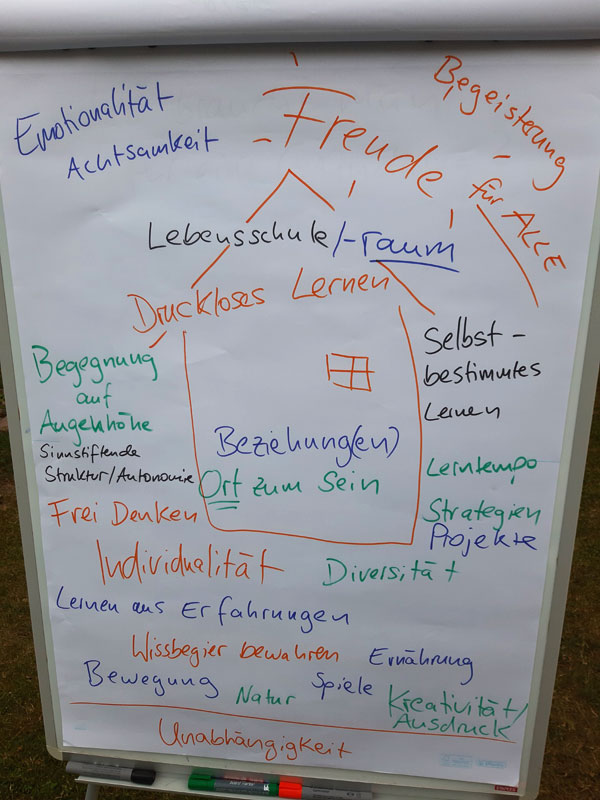 Emotionalität
Achtsamkeit
Freude
Begeisterung
für ALLE
Lebensschule/-raum
Druckloses Lernen
Begegnung
auf
Augenhöhe
Sinnstiftende
Struktur/Autonomie
Frei Denken
Beziehung(en)
Ort zum Sein
Selbst-
bestimmtes
Lernen
Lerntempo
Strategien
Projekte
Individualität
Diversität
Lernen aus Erfahrungen
Wissbegier bewahren
Ernährung
Bewegung
Natur
Spiele
Kreativität/
Ausdruck
Unabhängigkeit